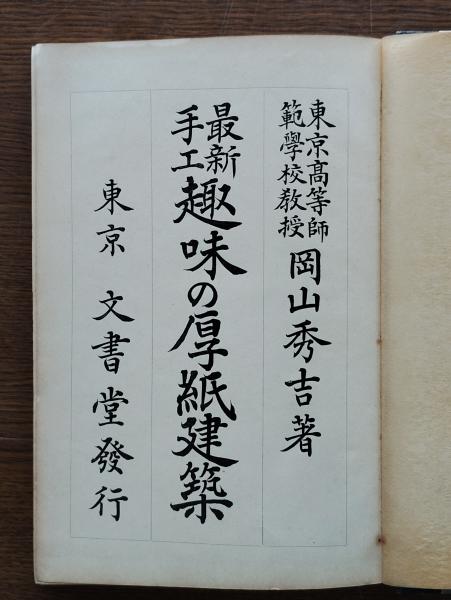 東京高等師範學校教授 岡山秀吉著
最新手工 趣味の厚紙建築
東京 文書堂發行